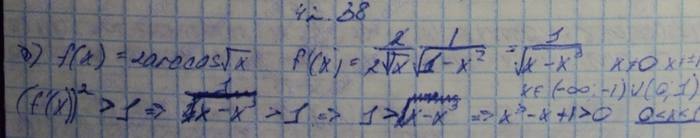 42.38
б) f(x) = 2arccos√x f'(x) = 2/(2√x) · 1/√(1-x²) = 1/√(x-x³) x≠0 x≠1
x∈(-∞;-1)∪(0;1)
(f'(x))² > 1 => 1/(x-x³) > 1 => 1 > x-x³ => x³-x+1>0 0<x<